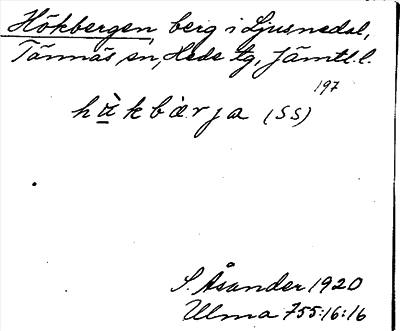 Hökbergen, berg i Ljusnedal,
Tännäs sn, Hede tg, Jämtl. l.
197
hʉ̀kbæ̀rja (SS)
S. Åsander 1920
Ulma 755:16:16